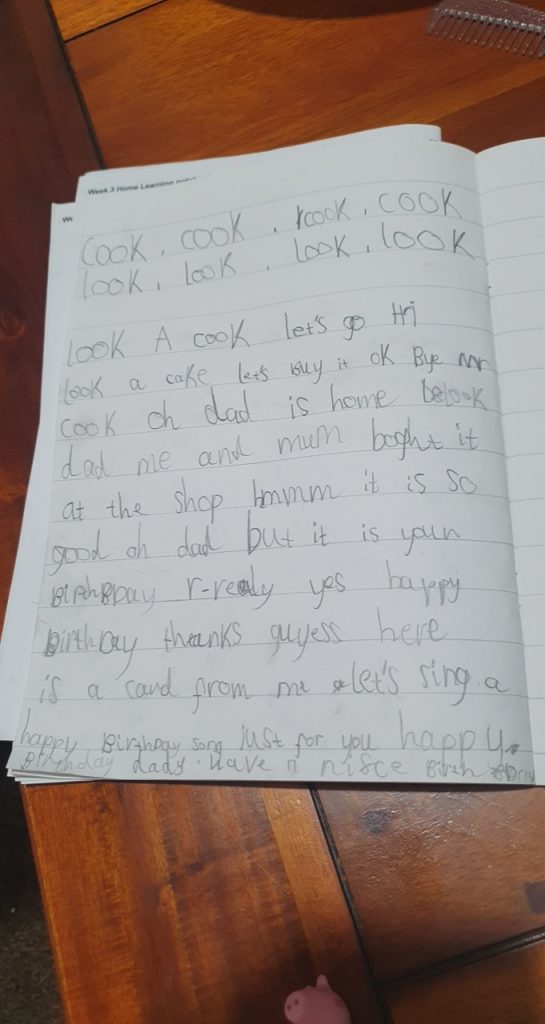 Week 3 Home Learning
We
Cook, cook, cook, cook
look, look, look, look
Look A cook let's go Hi
look a cake let's buy it ok Bye Mr
cook oh dad is home look
dad me and mum boght it
at the shop hmmm it is so
good oh dad but it is your
Birthday r-realy yes happy
Birthday thanks guyess here
is a card from me let's sing a
happy Birthday song just for you happy
Birthday dady. Have a nisce Birth